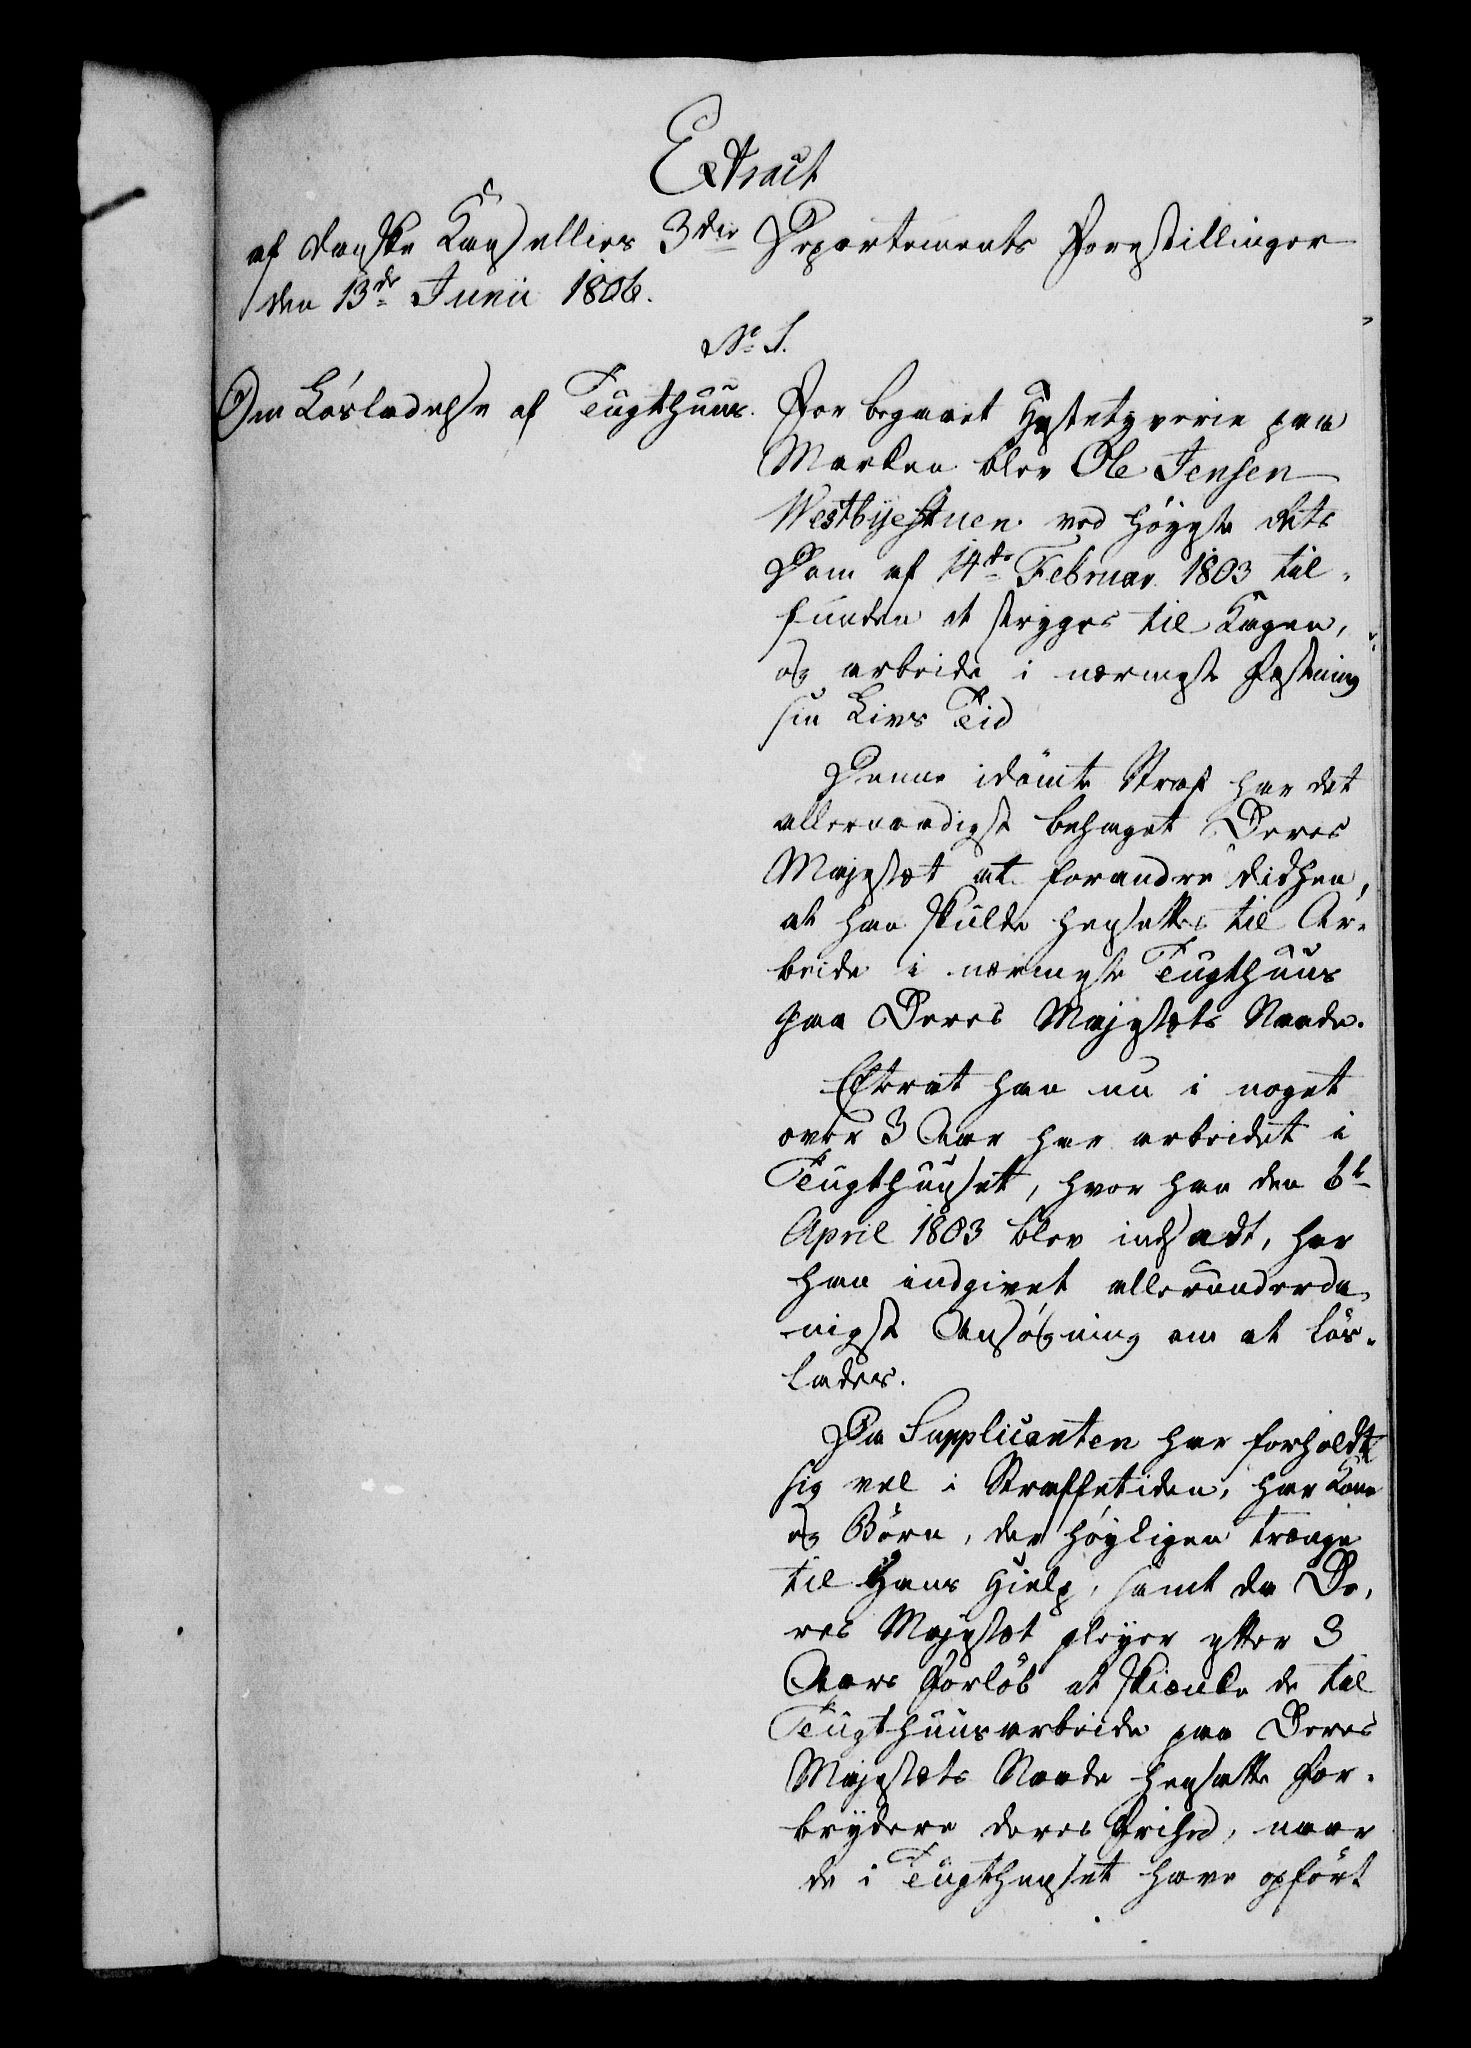 Extract
af danske Kancelliets 3die Departements Forestillinger
den 13de Junii 1806.
No 1.
Om Løsladelse af Tugthuus.
For begaaet Hestetyverie paa
Marken blev Ole Jensen
Westbyestuen ved Høyeste Rets
Dom af 14de Februar 1803 til-
funden at stryges til Kagen,
og arbeide i nærmeste Fæstning
sin Livs Tid
Denne idømte Straf har det
allernaadigst behaget Deres
Majestæt at forandre didhen,
at han skulde hensættes til Ar-
beide i nærmeste Tugthuus
paa Deres Majestæts Naade.
Efterat han nu i noget
over 3 Aar har arbeidet i
Tugthuuset, hvor han den 6te
April 1803 blev indsadt, har
han indgivet allerunderda-
nigst Ansøgning om at løs-
lades.
Da Supplicanten har forholdt
sig vel i Straffetiden, har Kone
og Børn, der høyligen trænge
til Hans Hielp, samt da De-
res Majestæt pleyer efter 3
Aars Forløb at skiænke de til
Tugthuusarbeide paa Deres
Majestæts Naade hensatte For-
brydere deres Frihed, naar
de i Tugthuuset have opført